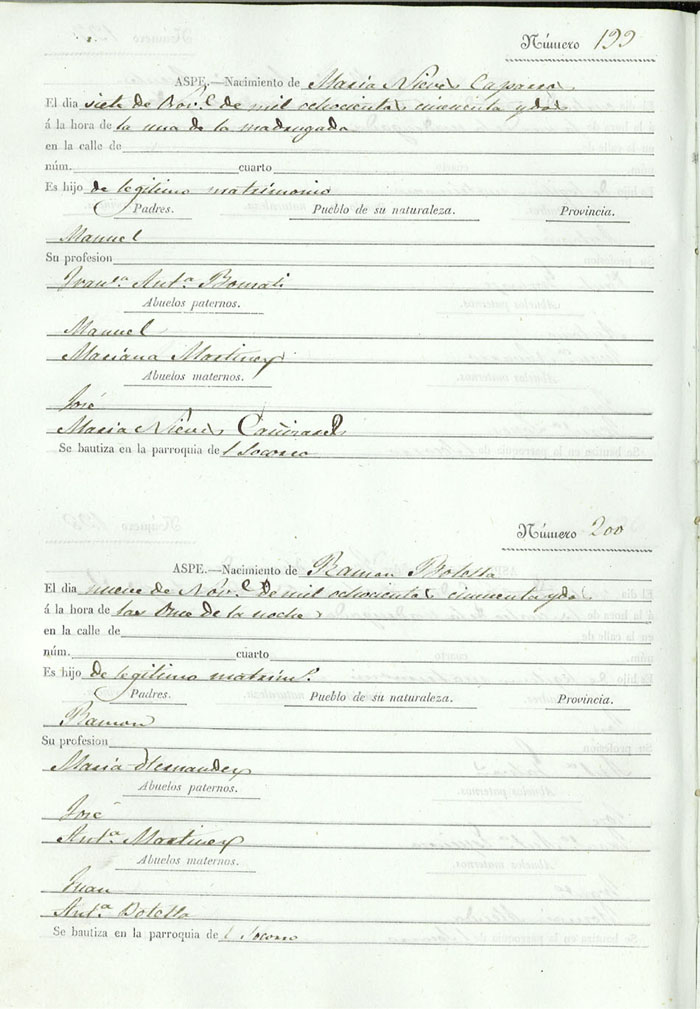 Número 199
ASPE.—Nacimiento de Maria Nieves Caparros
El dia siete de Nov.e de mil ochocientos cincuenta y dos
á la hora de la una de la madrugada
en la calle de
núm. cuarto
Es hijo de legitimo matrimonio
Padres. Pueblo de su naturaleza. Provincia.
Manuel
Su profesion
Fran.ca Ant.a
Abuelos paternos.
Manuel
Mariana Martinez
Abuelos maternos.
José
Maria Nieves Cañizares
Se bautiza en la parroquia de l Socorro
Número 200
ASPE.—Nacimiento de Ramon Botella
El dia nueve de Nov.e de mil ochocientos cincuenta y dos
á la hora de las Once de la noche
en la calle de
núm. cuarto
Es hijo de legitimo matrim.o
Padres. Pueblo de su naturaleza. Provincia.
Ramon
Su profesion
Maria Hernandez
Abuelos paternos.
José
Ant.a Martinez
Abuelos maternos.
Juan
Ant.a Botella
Se bautiza en la parroquia de l Socorro